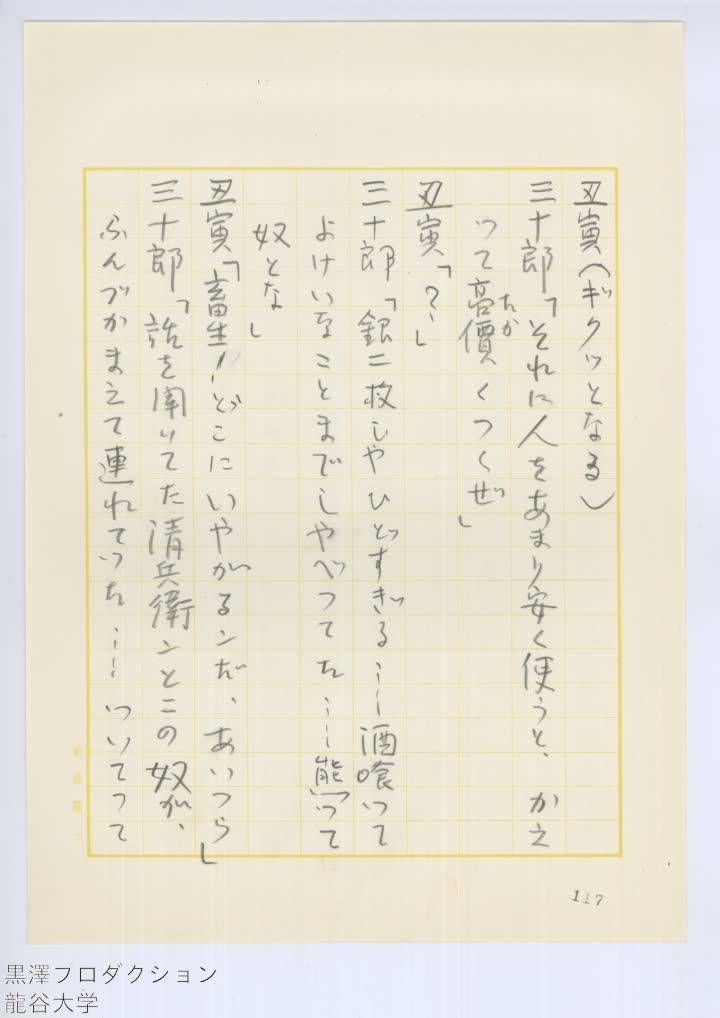 丑寅（ギクッとなる）
三十郎「それに人をあまり安く使うと、かえ
って高價くつくぜ」
たか
丑寅「？」
三十郎「銀二枚じゃひどすぎる……酒喰って
よけいなことまでしゃべってた……熊って
奴とな」
丑寅「畜生！どこにいやがるンだ、あいつら」
三十郎「話を聞いてた清兵衛ンとこの奴が、
ふんづかまえて連れてった……ついてって
117
黒澤プロダクション
龍谷大学